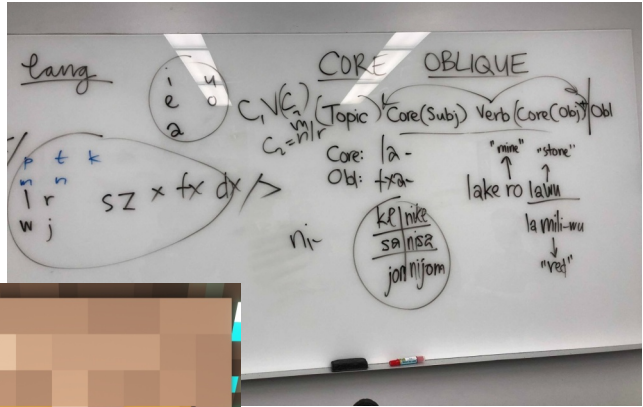 lang
i u
e o
a
/
p t k
m n
l r
w j
s z x tx dx />
CORE OBLIQUE
C₁V(C₂) (Topic) Core(Subj) Verb (Core(Obj)) | Obl
C₂ = m/n/r
Core: la-
Obl: txa-
"mine" "stone"
lake ro lawu
la mili-wu
"red"
ni-
ke | nike
sa | nisa
jom | nijom